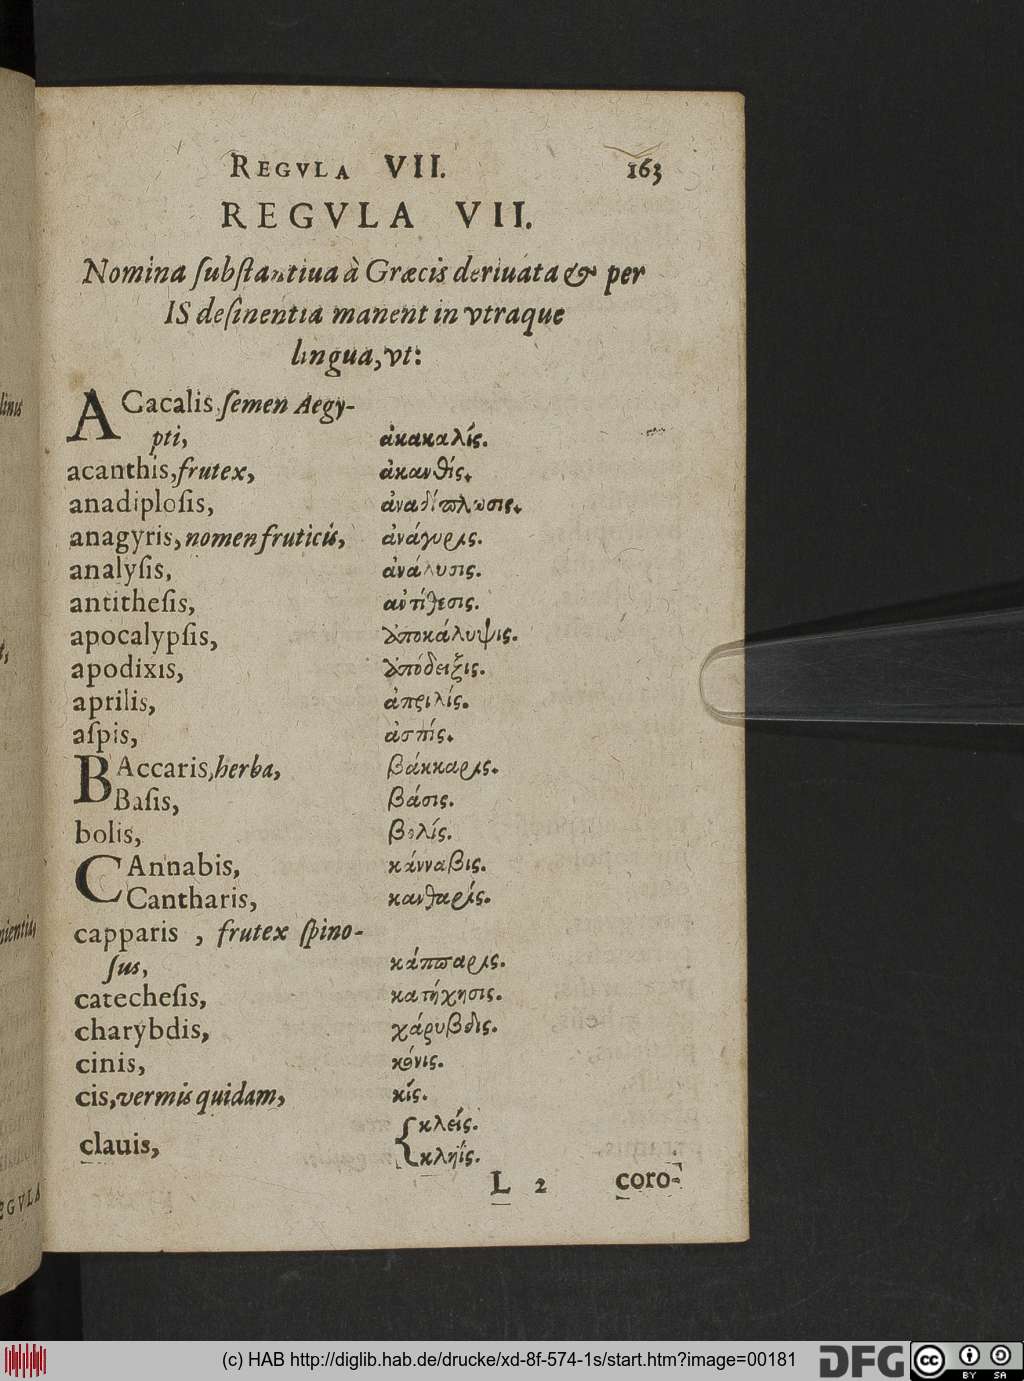 REGVLA VII. 163
REGVLA VII.
Nomina ſubſtantiua à Græcis deriuata & per
IS deſinentia manent in vtraque
lingua, vt:
ACacalis, ſemen Aegy-
pti, ἀκακαλίς.
acanthis, frutex, ἀκανθίς.
anadiploſis, ἀναδίπλωσις.
anagyris, nomen fruticis, ἀνάγυρις.
analyſis, ἀνάλυσις.
antitheſis, αὐτίθεσις.
apocalypſis, ἀποκάλυψις.
apodixis, ἀπόδειξις.
aprilis, ἀπριλίς.
aſpis, ἀσπίς.
BAccaris, herba, βάκκαρις.
Baſis, βάσις.
bolis, βολίς.
CAnnabis, κάνναβις.
Cantharis, κανθαρίς.
capparis , frutex ſpino-
ſus, κάππαρις.
catecheſis, κατήχησις.
charybdis, χάρυβδις.
cinis, κόνις.
cis, vermis quidam, κίς.
clauis, κλείς.
κληΐς.
L 2 coro-
linis
t,
nientia,
EGVLA
(c) HAB http://diglib.hab.de/drucke/xd-8f-574-1s/start.htm?image=00181
DFG
cc BY SA